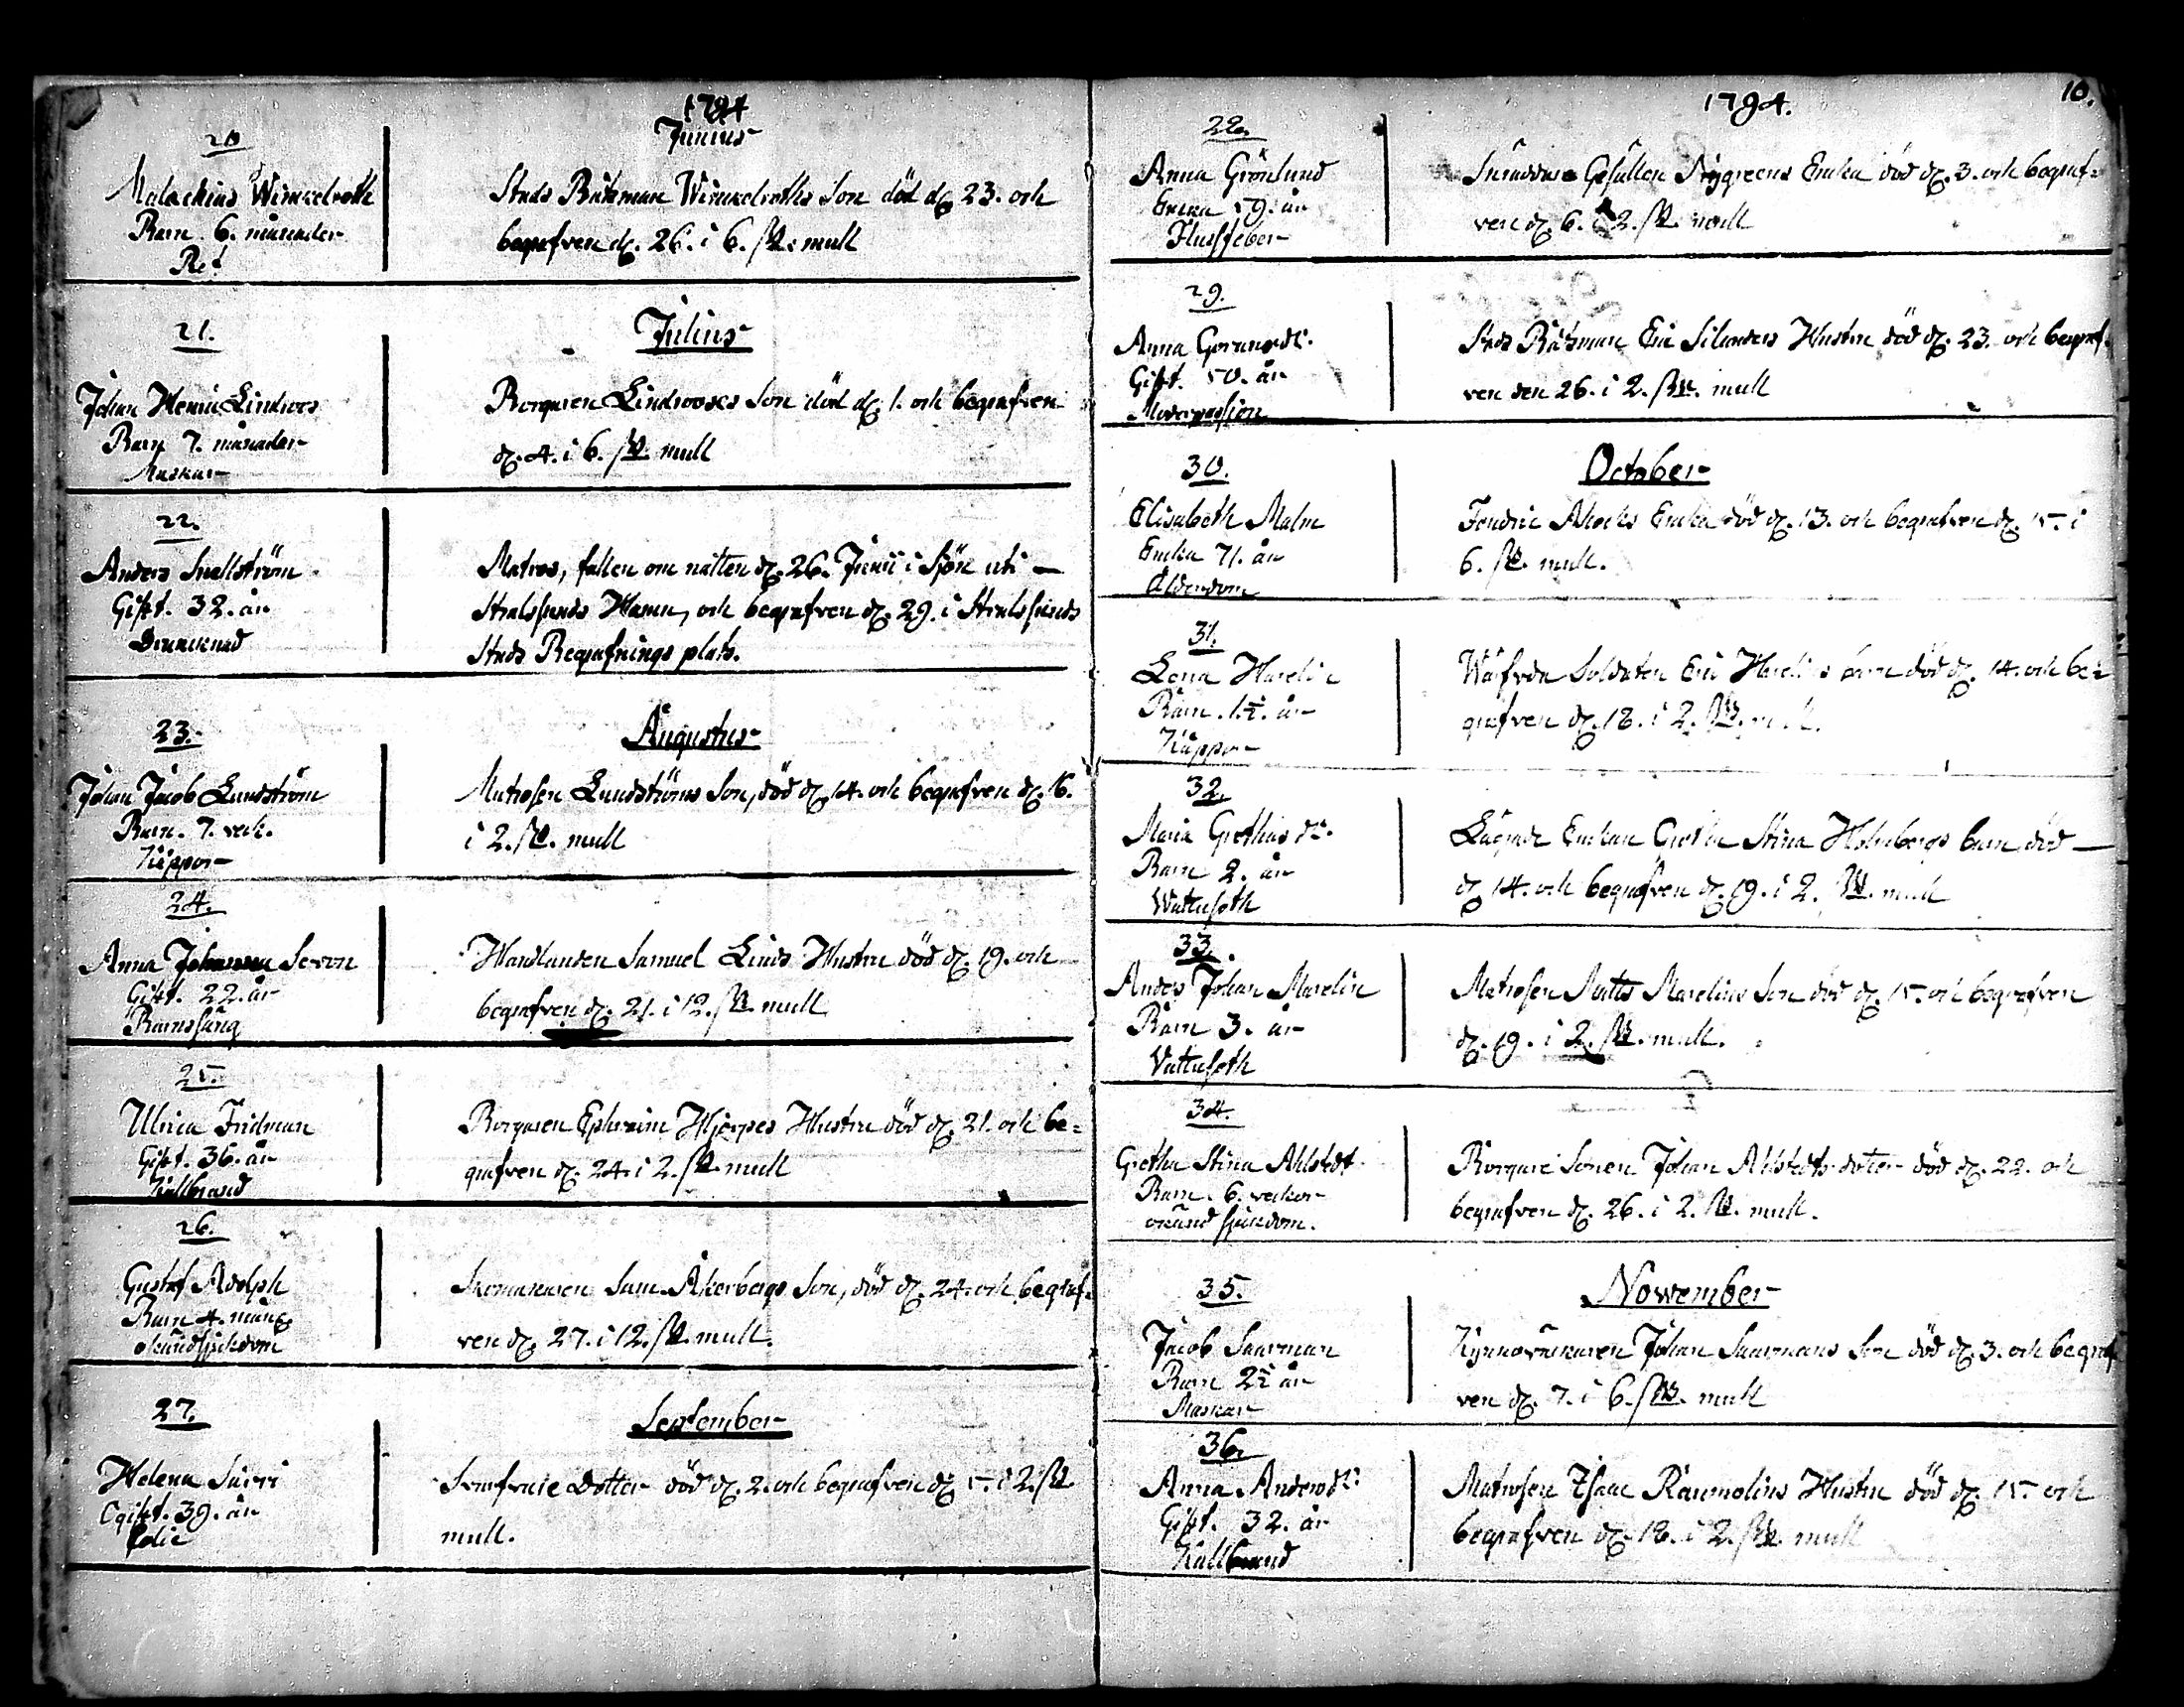 1794
Junius
20
Malachias Winkelroth
Barn. 6. månader
Ref
Stads Båtsman Winkelroths Son död d. 23. och
begrafven d. 26. i 6. sk. mull
Julius
21.
Johan Henric Lindroos
Barn 7. månader
Maskar
Borgaren Lindrooses Son död d. 1. och begrafven
d. 4. i 6. sk. mull
22.
Anders Snellström
Gift. 32. år
Drunknad
Matros, fallen om natten d. 26. Junii i Sjön uti
Stralsunds Hamn, och begrafven d. 29. i Stralsunds
Stads Begrafnings plats.
Augustus
23.
Johan Jacob Lundström
Barn. 7. veck.
Koppor
Matrosen Lundströms Son, död d. 14. och begrafven d. 16.
i 2. sk. mull
24.
Anna Johanna Sevon
Gift. 22. år
Barnsäng
Handlanden Samuel Linds Hustru död d. 19. och
begrafven d. 21. i 12. sk. mull
25.
Ulrica Fridman
Gift. 36. år
Kallbrand
Borgaren Ephraim Hjerpes Hustru död d. 21. och be=
grafven d. 24. i 2. sk. mull
26.
Gustaf Adolph
Barn 4. mån.
okänd sjukdom
Skomakaren Sam. Åkerbergs Son, död d. 24. och begraf=
ven d. 27. i 12. sk. mull.
September
27.
Helena
Ogift. 39. år
dotter död d. 2. och begrafven d. 5. i 2. sk
mull.
1794.
10.
Anna Grönlund
Enka 59. år
Flussfeber
Gesällen Nygreens Enka död d. 3. och begraf=
ven d. 6. i 2. sk. mull
29.
Anna Göransdr.
Gift. 50. år
Moderpassion
Stads Båtsman Eric Silanders Hustru död d. 23. och begraf=
ven den 26. i 2. sk. mull
October
30.
Elisabeth Malm
Enka 71. år
Ålderdom
Enka död d. 13. och begrafven d. 15. i
6. sk. mull.
31.
Lena Harelin
Barn. 1½. år
Koppor
Soldaten Eric Harelins barn död d. 14. och be=
grafven d. 18. i 2. sk. mull.
32.
Maria Grethas dr.
Barn 2. år
Wattusoth
Enkan Gretha Stina Holmbergs barn död
d. 14. och begrafven d. 19. i 2. sk. mull
33.
Anders Johan Marelin
Barn 3. år
Vattusoth
Matrosen Matts Marelins Son död d. 15. och begrafven
d. 19. i 2. sk. mull.
34.
Gretha Stina Ahlstedt
Barn. 6. veckor
okänd sjukdom.
Borgare Sonen Johan Ahlstedts dotter död d. 22. och
begrafven d. 26. i 2. sk. mull.
Nowember
35.
Jacob Saarman
Barn 2½ år
Maskar
Johan Saarmans Son död d. 3. och begraf
ven d. 7. i 6. sk. mull
36.
Anna Andersdr:
Gift. 32. år
Kallbrand
Matrosen Isaac Raumolins Hustru död d. 15. och
begrafven d. 18. i 2. sk. mull